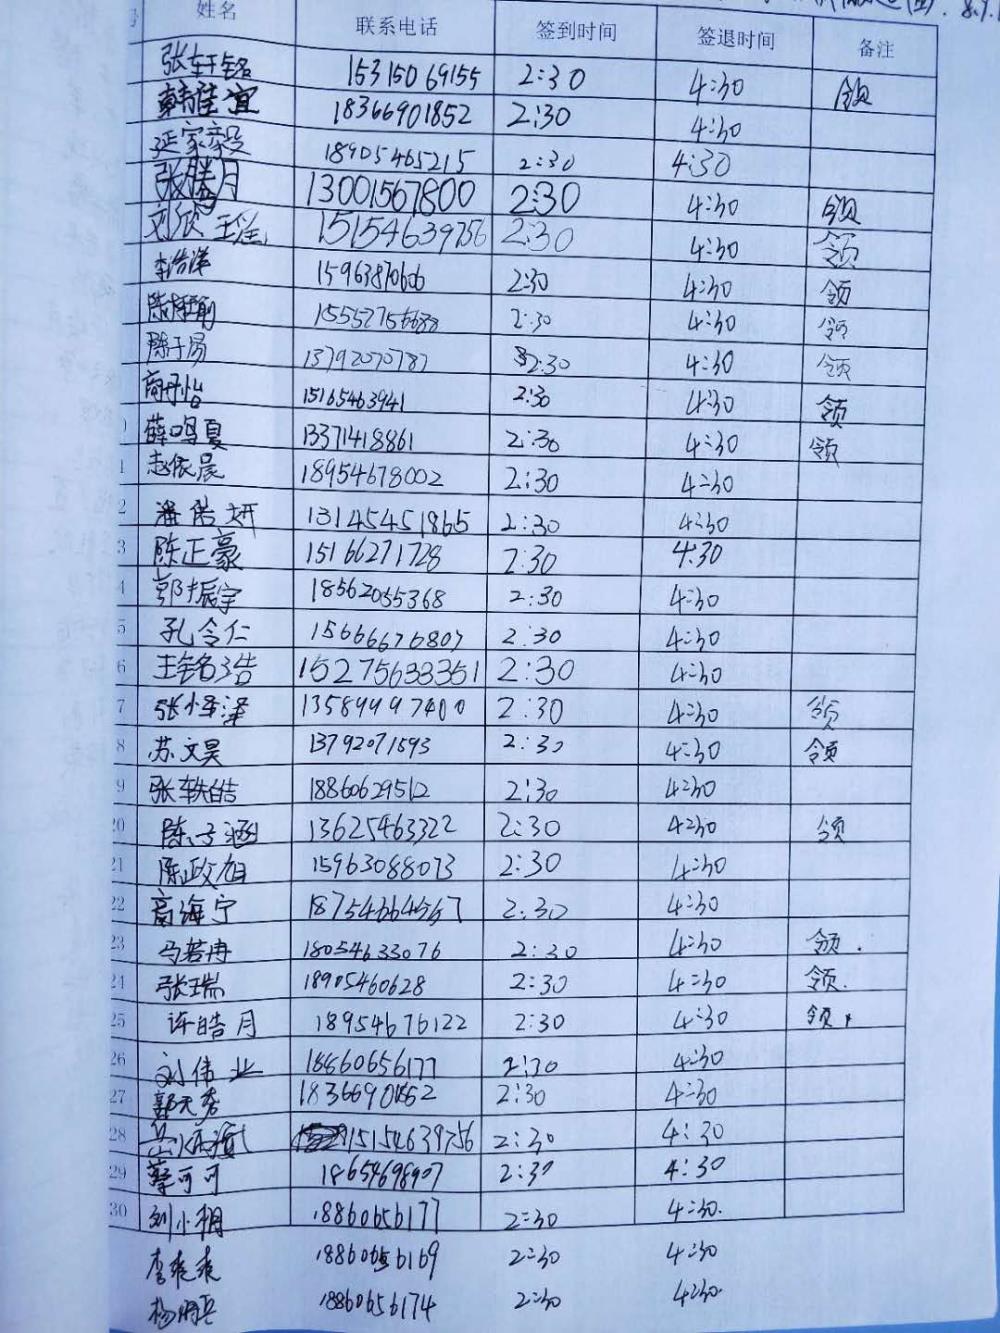 姓名 联系电话 签到时间 签退时间 备注
张轩铭 15315069155 2:30 4:30 领
韩佳宜 18366901852 2:30 4:30
延家毅 18905465215 2:30 4:30
张腾月 13001567800 2:30 4:30 领
刘欣 15154639756 2:30 4:30 领
李浩洋 15963870606 2:30 4:30 领
2:30 4:30 领
陈子易 13792070787 2:30 4:30 领
商子怡 15165463941 2:30 4:30 领
薛鸣夏 13371418861 2:30 4:30 领
赵依晨 18954678002 2:30 4:30
潘皓妍 13145451865 2:30 4:30
3 陈正豪 15166271728 2:30 4:30
郭振宇 18562055368 2:30 4:30
5 孔令仁 15666676807 2:30 4:30
6 王铭浩 15275633351 2:30 4:30
7 张怿泽 13589997400 2:30 4:30 领
8 苏文昊 13792071593 2:30 4:30 领
9 张轶皓 18860629512 2:30 4:30
20 陈子涵 13625463322 2:30 4:30 领
21 陈政旭 15963088073 2:30 4:30
22 高海宁 18754664567 2:30 4:30
23 马若冉 18054633076 2:30 4:30 领.
24 张瑞 18905460628 2:30 4:30 领.
25 许皓月 18954676122 2:30 4:30 领.
26 刘伟业 18860656177 2:30 4:30
27 郭天秀 18366901852 2:30 4:30
28 15154639756 2:30 4:30
29 蔡可可 18654698907 2:30 4:30
30 刘小栩 18860656177 2:30 4:30.
李爽爽 18860656169 2:30 4:30
杨明兵 18860656174 2:30 4:30.